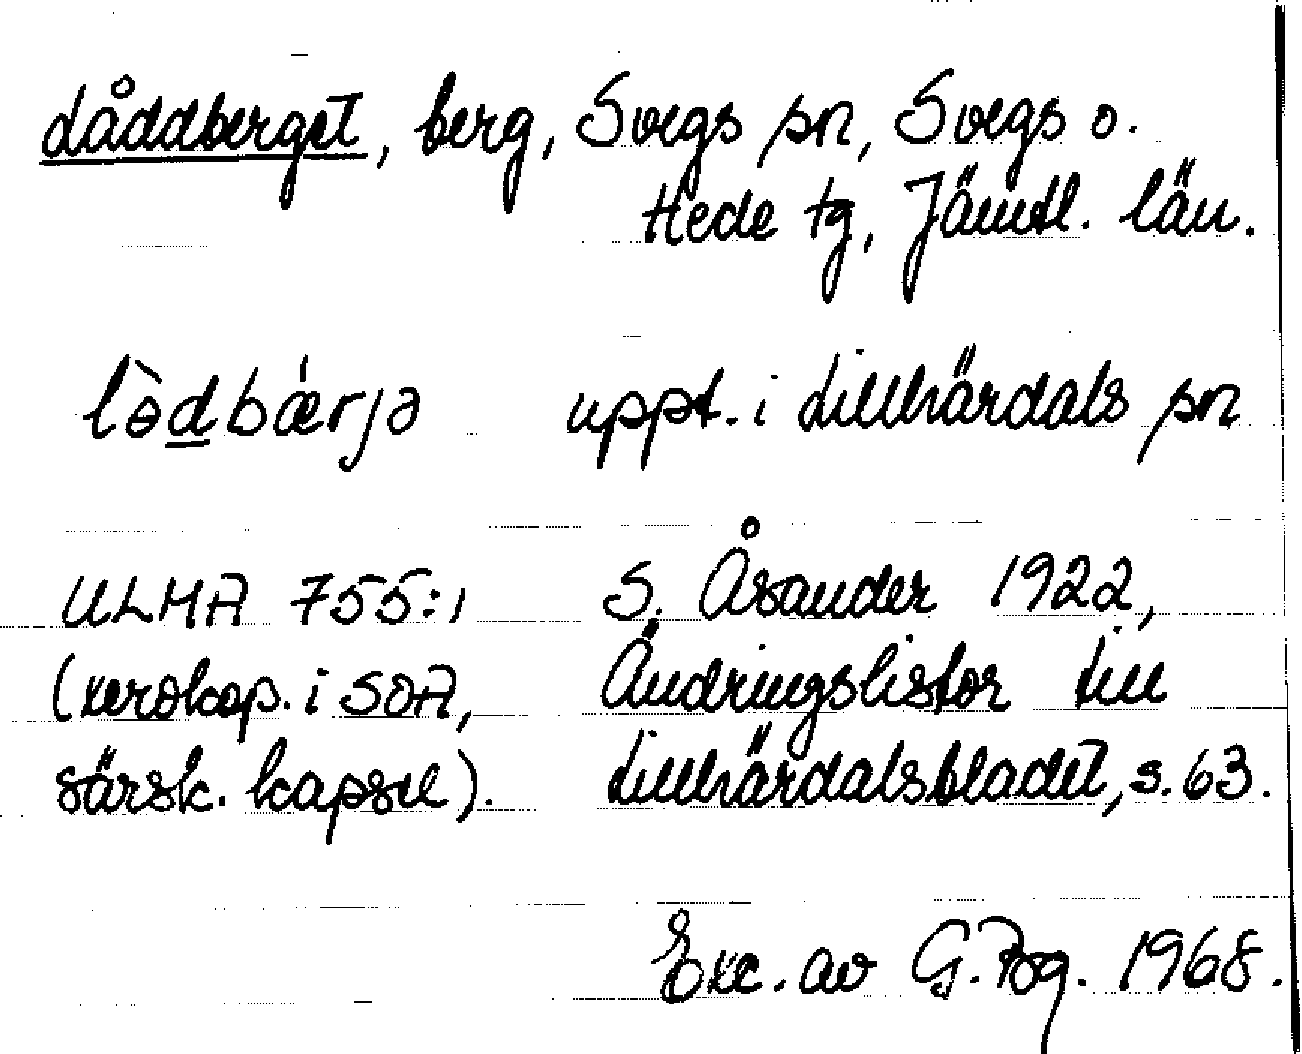 Låddberget, berg, Svegs sn, Svegs o.
Hede tg, Jämtl. län.
lə̀dbǽrjə uppt. i Lillhärdals sn
ULMA 755:1 S. Åsander 1922,
(xerokop. i SOA, Ändringslistor till
särsk. kapsel). Lillhärdalsbladet, s. 63.
Exc. av G. Pg. 1968.